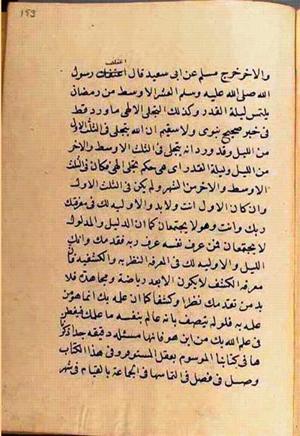 ١٥٩
اعتكف
والاخر خرج مسلم عن ابى سعيد قال اعتكف رسول
الله صلى الله عليه وسلم العشر الاوسط من رمضان
يلتمس ليلة القدر وكذلك التجلى الالهى ما ورد قط
فى خبر صحيح نبوى ولا سقيم ان الله يتجلى فى الثلث الاول
من الليل وقد ورد انه يتجلى فى الثلث الاوسط والاخر
من الليل وليلة القدر اى هى حكم تجلى الهى فكان فى الثلث
الاوسط والاخر من الشهر ولم يكن فى الثلث الاول
وان كان الاول انت ولا بد والاولية لك فى معرفتك
ربك وانت وهو لا يجتمعان كما ان الدليل والمدلول
لا يجتمعان فمن عرف نفسه عرف ربه فقدمك وانك
الليل والاولية لك فى المعرفة النظرية والكشفية فان
معرفة الكشف لا يكون الا بعد رياضة ومجاهدة فلا
بد من تقدمك نظرا وكشفا كما ان علمه بك انما هو من
علمه به فلو لم يتصف بانه عالم بنفسه ما علمك فيظن
فى علم الله بك من اين هو فانها مسئلة دقيقة جدا ذكرنا
ها فى كتابنا الموسوم بعقلة المستوفز وفى هذا الكتاب
وصل فى فصل فى التماسها فى الجماعة بالقيام فى شهر